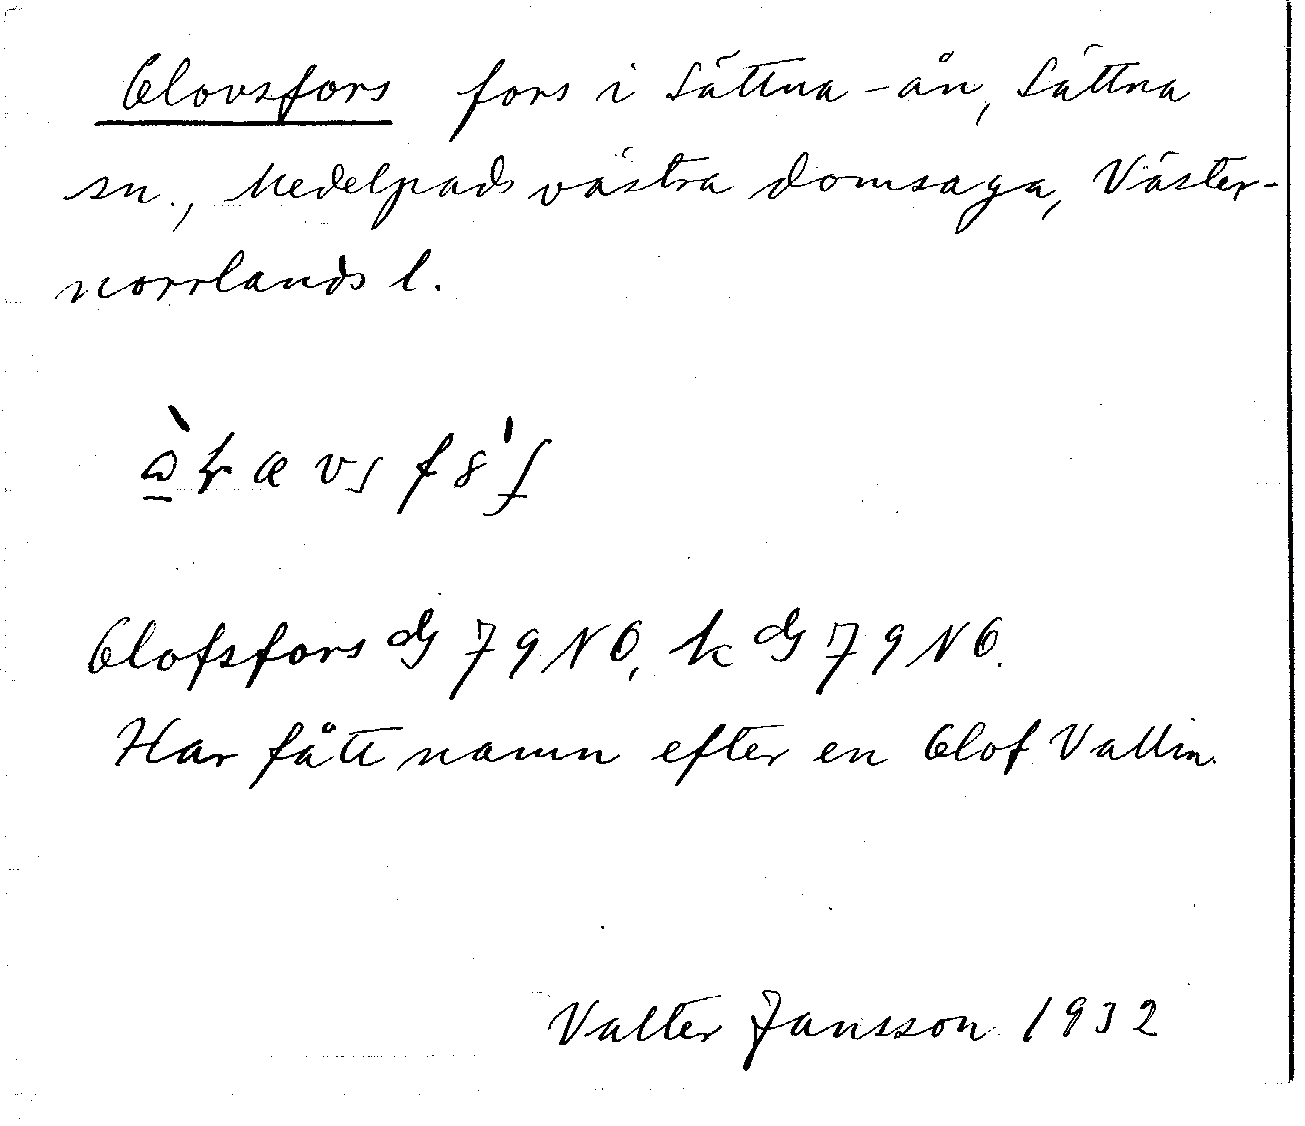 Olovsfors fors i Sättna-ån, Sättna
sn., Medelpads västra domsaga, Väster-
norrlands l.
Olofsfors dg 79 NO, k dg 79 NO.
Har fått namn efter en Olof Vallin.
Valter Jansson 1932